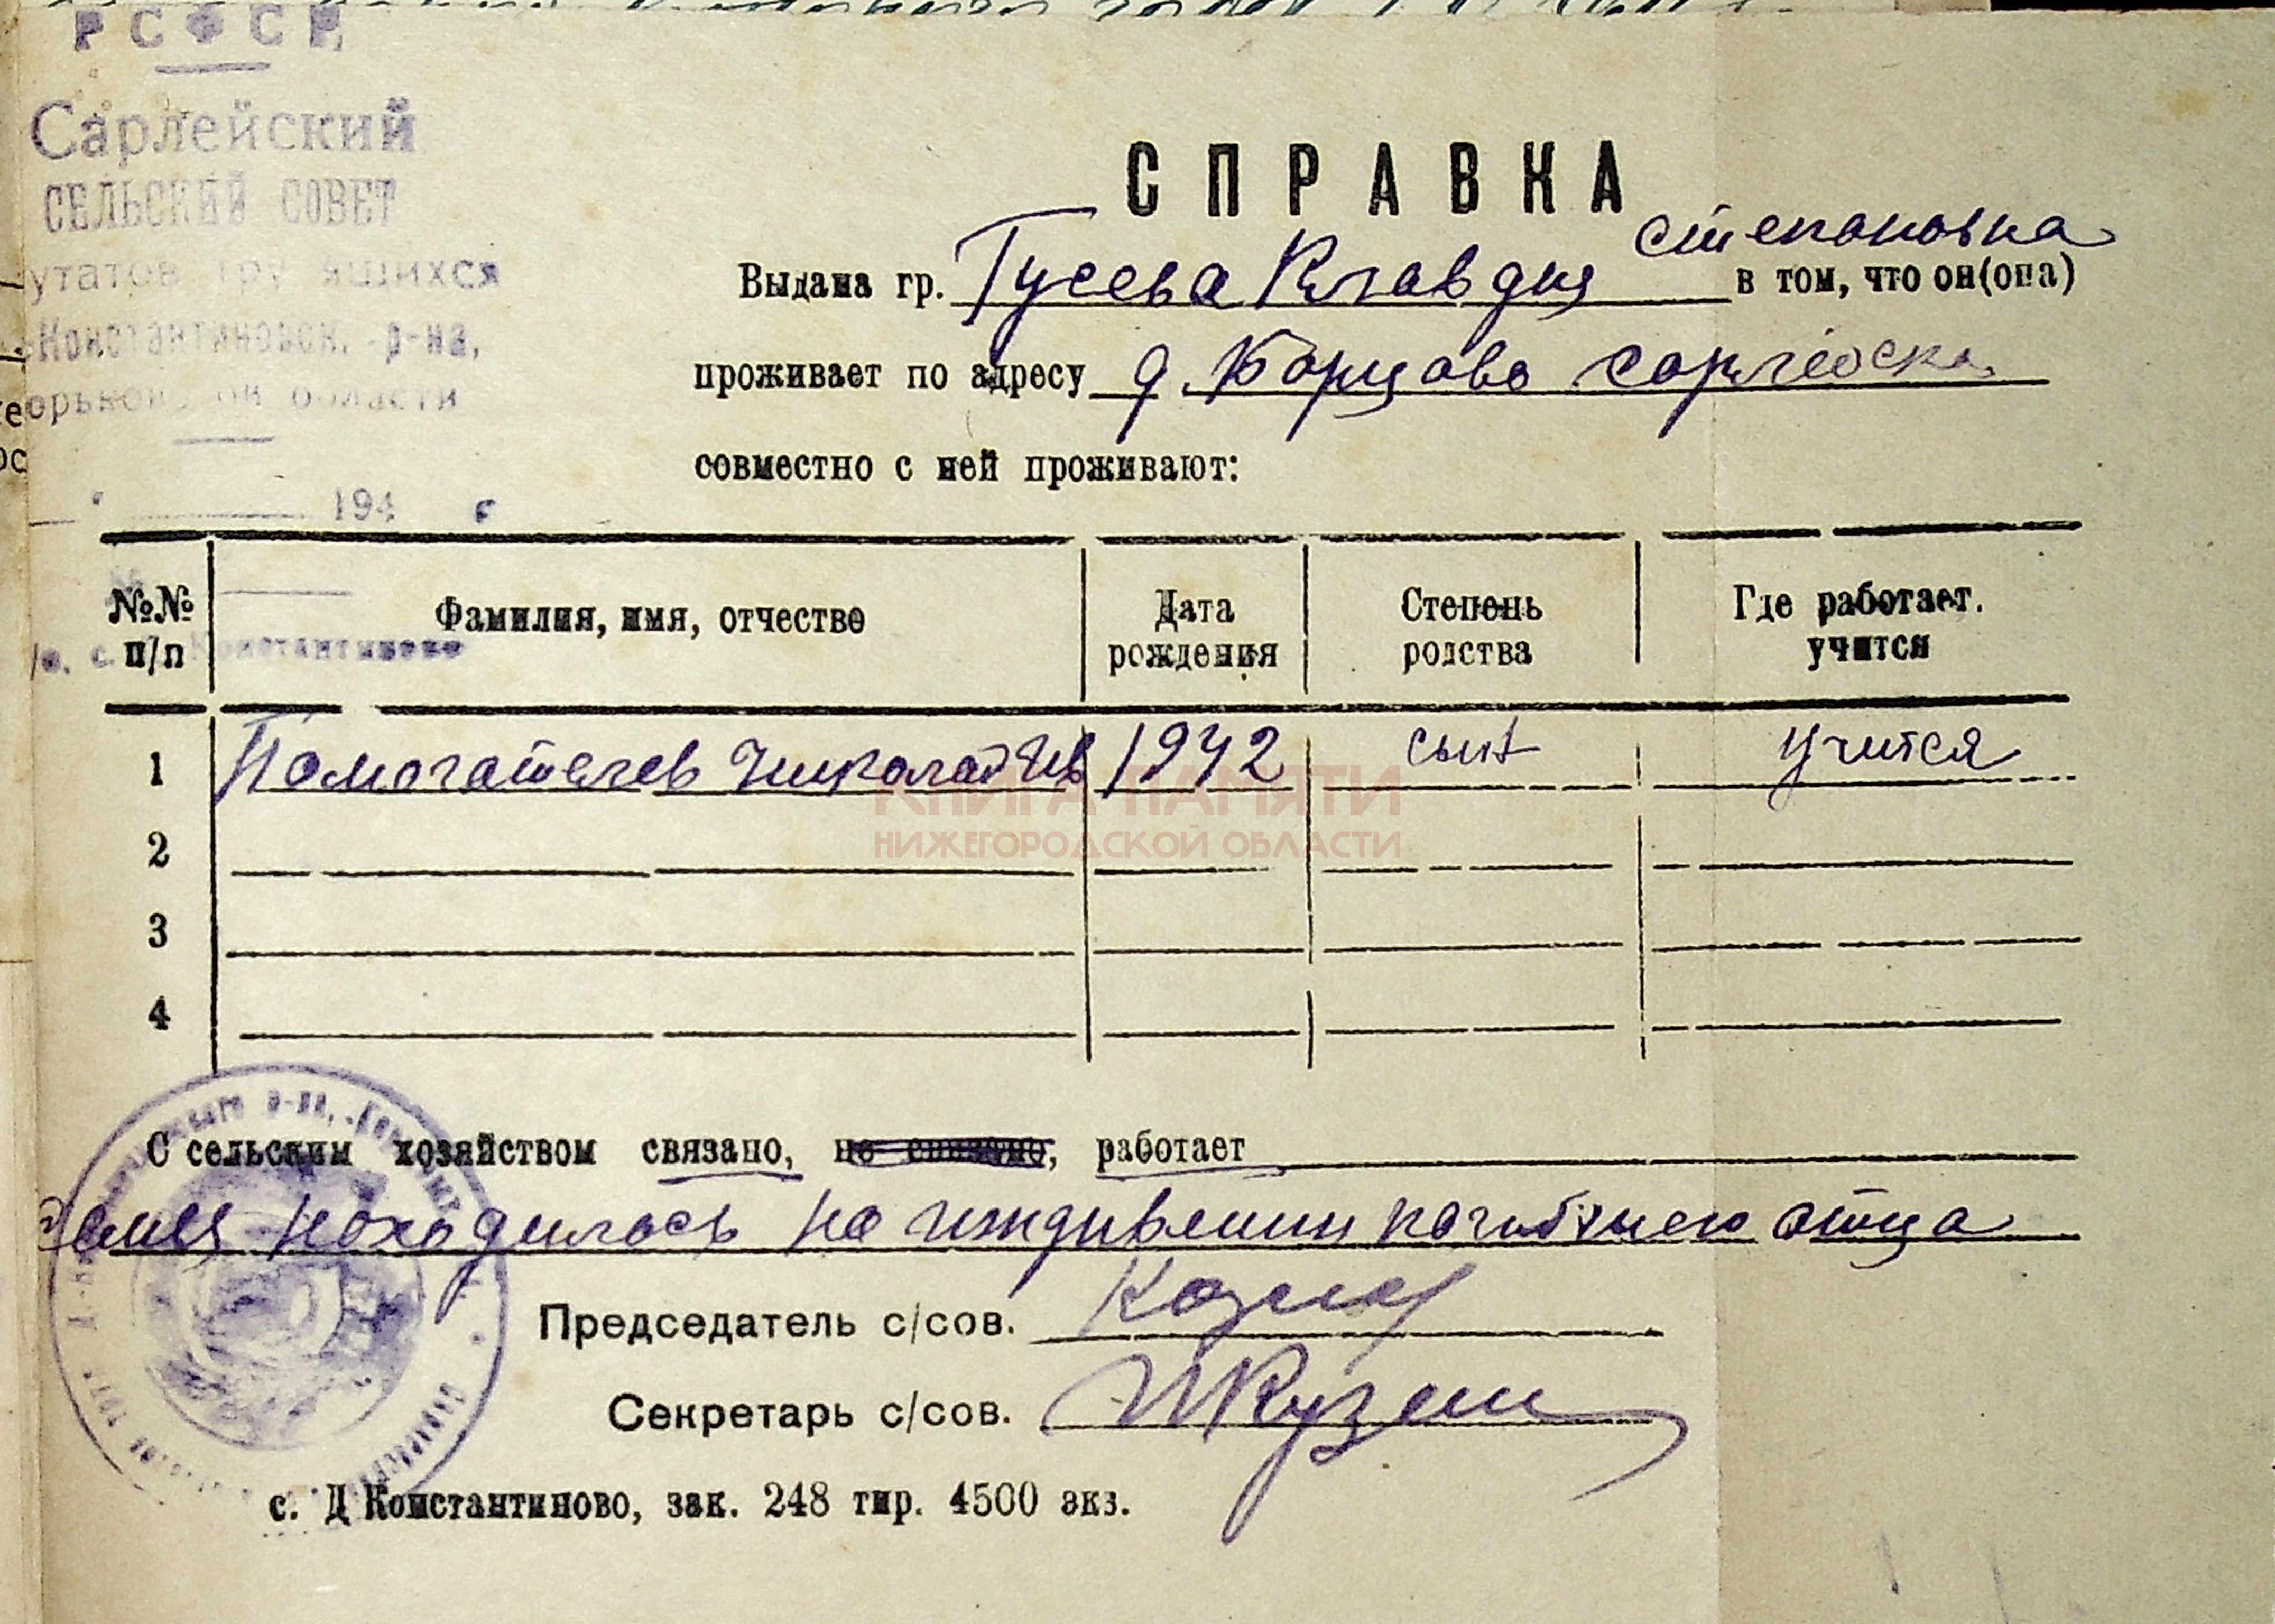 РСФСР
Сарлейский
СЕЛЬСКИЙ СОВЕТ
утатов тру ящихся
Константиновск. р-на,
орьков ой области
194 г
СПРАВКА
Степановна
Выдана гр. Гусева Клавдия в том, что он(она)
проживает по адресу д. Борцово
совместно с ней проживают:
№№ п/п
Фамилия, имя, отчество
Дата рождения
Степень родства
Где работает. учится
с. Константиново
1 Помогателев Николай Ив 1942 сын учится
КНИГА ПАМЯТИ
НИЖЕГОРОДСКОЙ ОБЛАСТИ
2
3
4
С сельским хозяйством связано, не связано, работает
Семья находилась на иждивении погибшего отца
Председатель с/сов.
Секретарь с/сов.
с. Д Константиново, зак. 248 тир. 4500 экз.